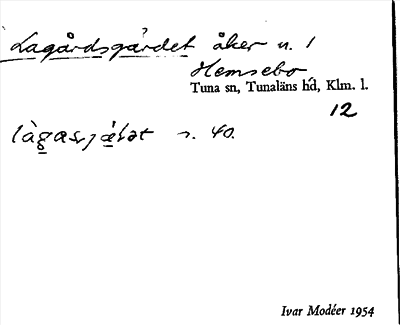 Lagårdsgärdet åker n. 1
Hemsebo
Tuna sn, Tunaläns hd, Klm. l.
12
s. 40.
Ivar Modéer 1954